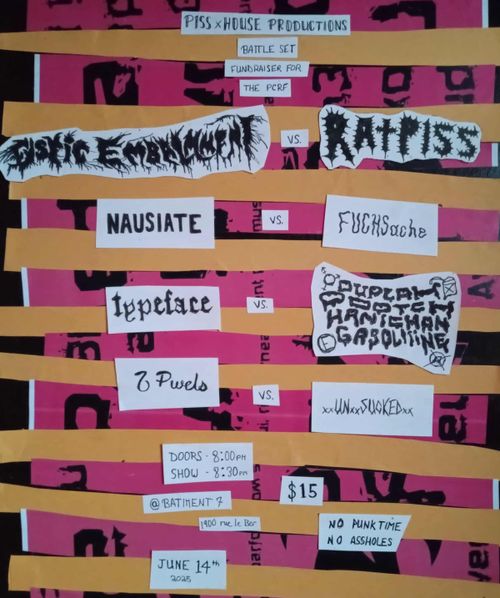 PISS x HOUSE PRODUCTIONS
BATTLE SET
FUNDRAISER FOR
THE PCRF
CYSTIC EMBALMMENT VS. RATPISS
NAUSIATE VS. FUCHSache
typeface VS.
GASOLIIINE
VS. xxUNxxSUCKEDxx
DOORS - 8:00PM
SHOW - 8:30PM
$15
@ BATIMENT 7
1900 rue le Ber
NO PUNK TIME
NO ASSHOLES
JUNE 14th
2025